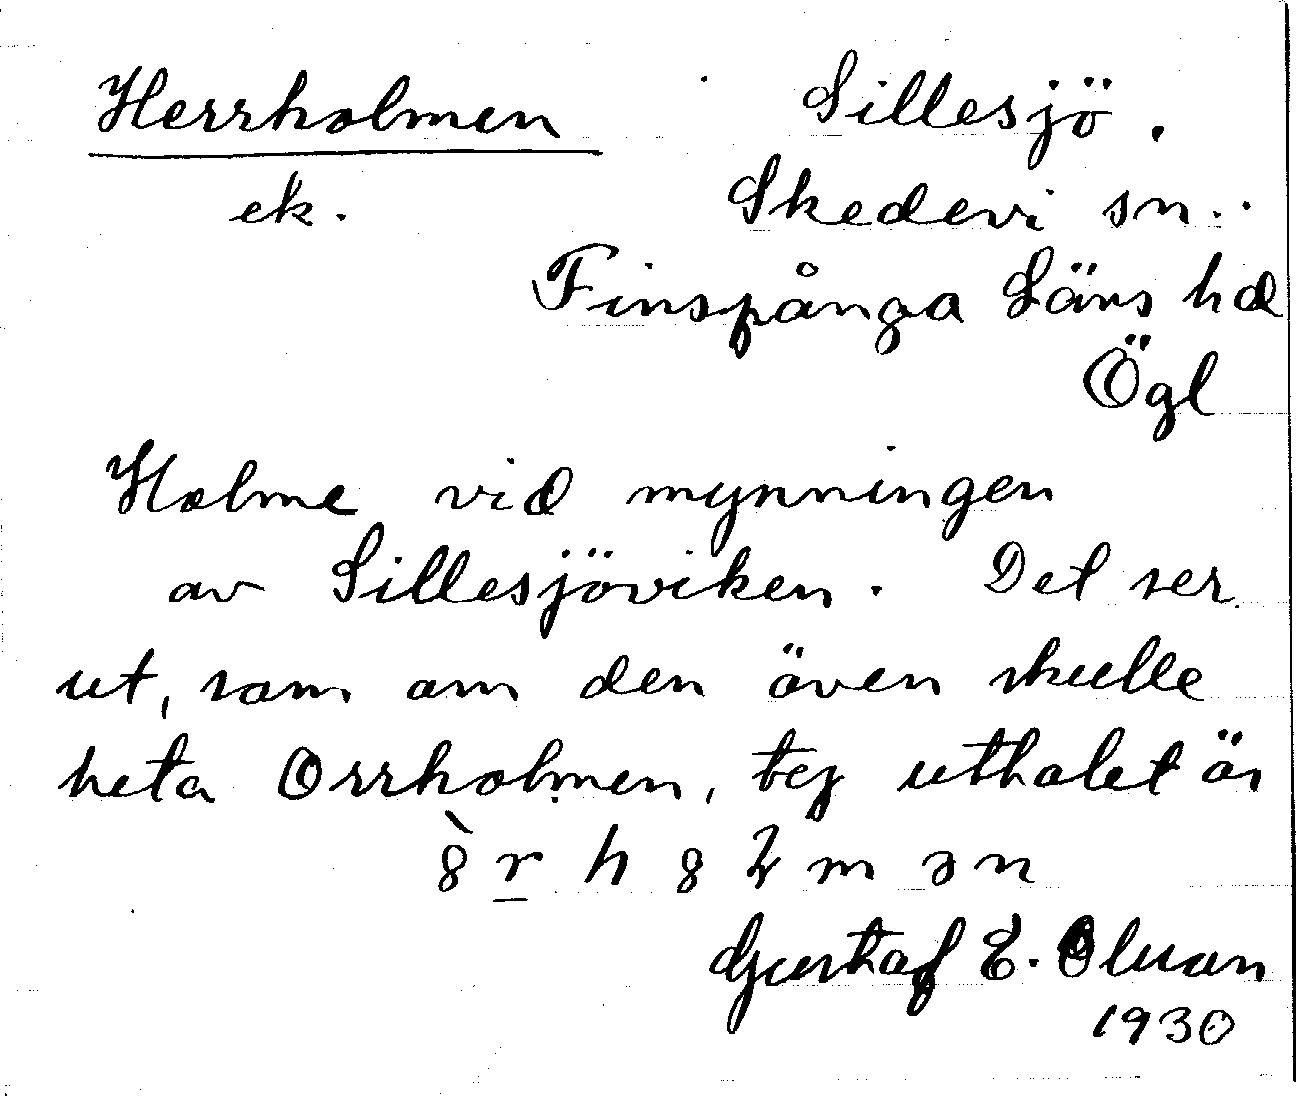 Herrholmen Sillesjö.
ek. Skedevi sn.
Finspånga Läns hd
Ögl
Holme vid mynningen
av Sillesjöviken. Det ser
ut, som om den även skulle
heta Orrholmen, ty uttalet är
m ə n
Gustaf E. Olsson
1930